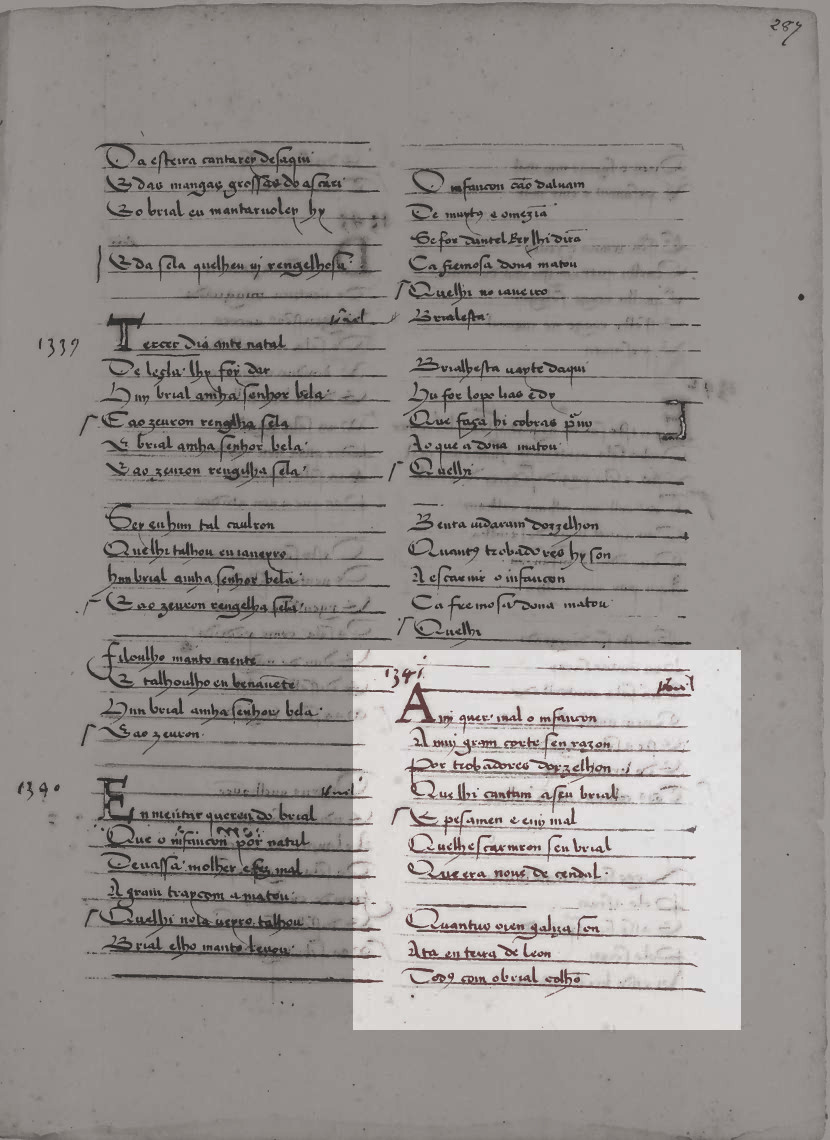 287
Da esteira cantarey desaqui
E das mangas grossas do ascari
E o brial eu mantaruolen hy
E da sela quelheu ui rengelhosa
1339
Tercer dia ante natal
De lesla lhy foy dar
Hun brial amha senhor bela
E ao zeuron rengelha sela
E brial amha senhor bela
E ao zeuron rengelha sela
Sey eu hun tal caualron
Quelhi talhou en ianeyro
hun brial amha senhor bela
E ao zeuron rengelha sela
filoulho manto caente
E talhoulho en benauete
Hun brial amha senhor bela
E ao zeuron
1340
En mentar queren do brial
Que o infancon por natal
Deuassa molher e fez mal
A gram traycom a matou
Quelhi no ianeyro talhou
Brial elho manto leuou
O infancon cão daluam
De muytꝯ e omezia
Se for dantel Rey lhi dira
Ca fremosa dona matou
Quelhi no ianeiro
Brialesta
Brialhesta uayte daqui
Hu for lope lias e dy
Que faça hi cobras p̃ mi
Ao que a dona matou
Quelhi
Benta uidaram dorzelhon
Quantꝯ trobadores hy son
A escarnir o infancon
Ca fremosa dona matou
Quelhi
1341
A mi quer mal o infancon
A mui gram corte sen razon
Por trobadores dorzelhon
Que lhi cantam aseu brial
E pesamen e eni mal
Quelhescarniron seu brial
Que era nouo de cendal
Quantuo oien galiza son
Ata en terra de leon
Todꝯ com o brial colhõ